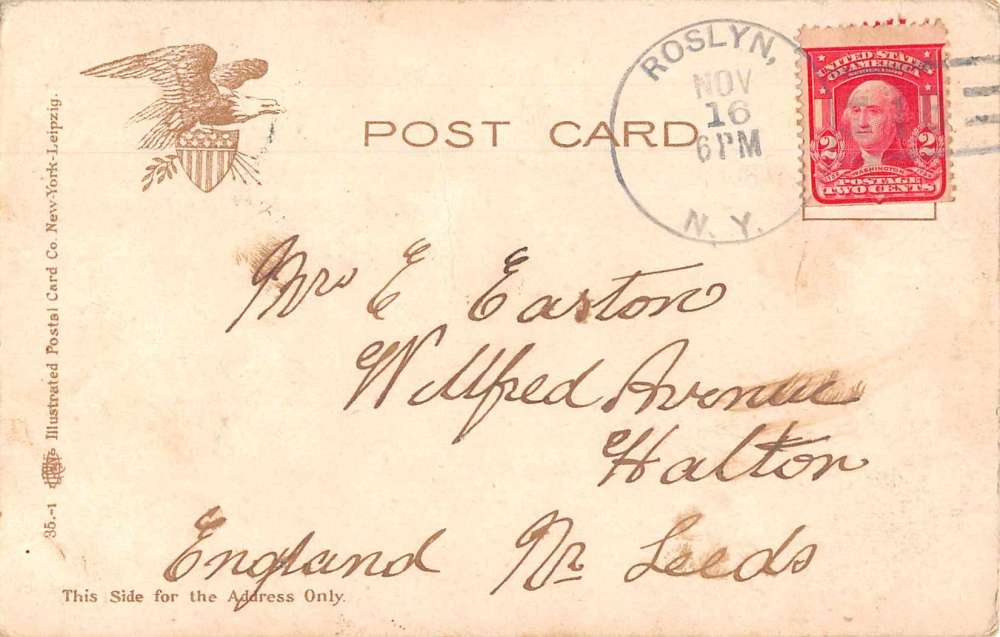 POST CARD
ROSLYN,
NOV
16
6 PM
N. Y.
UNITED STATES
OF AMERICA
2 2
WASHINGTON
POSTAGE
TWO CENTS
Mrs E Easton
Wilfred Avenue
Halton
England Nr Leeds
This Side for the Address Only.
35.-1 Illustrated Postal Card Co. New-York-Leipzig.